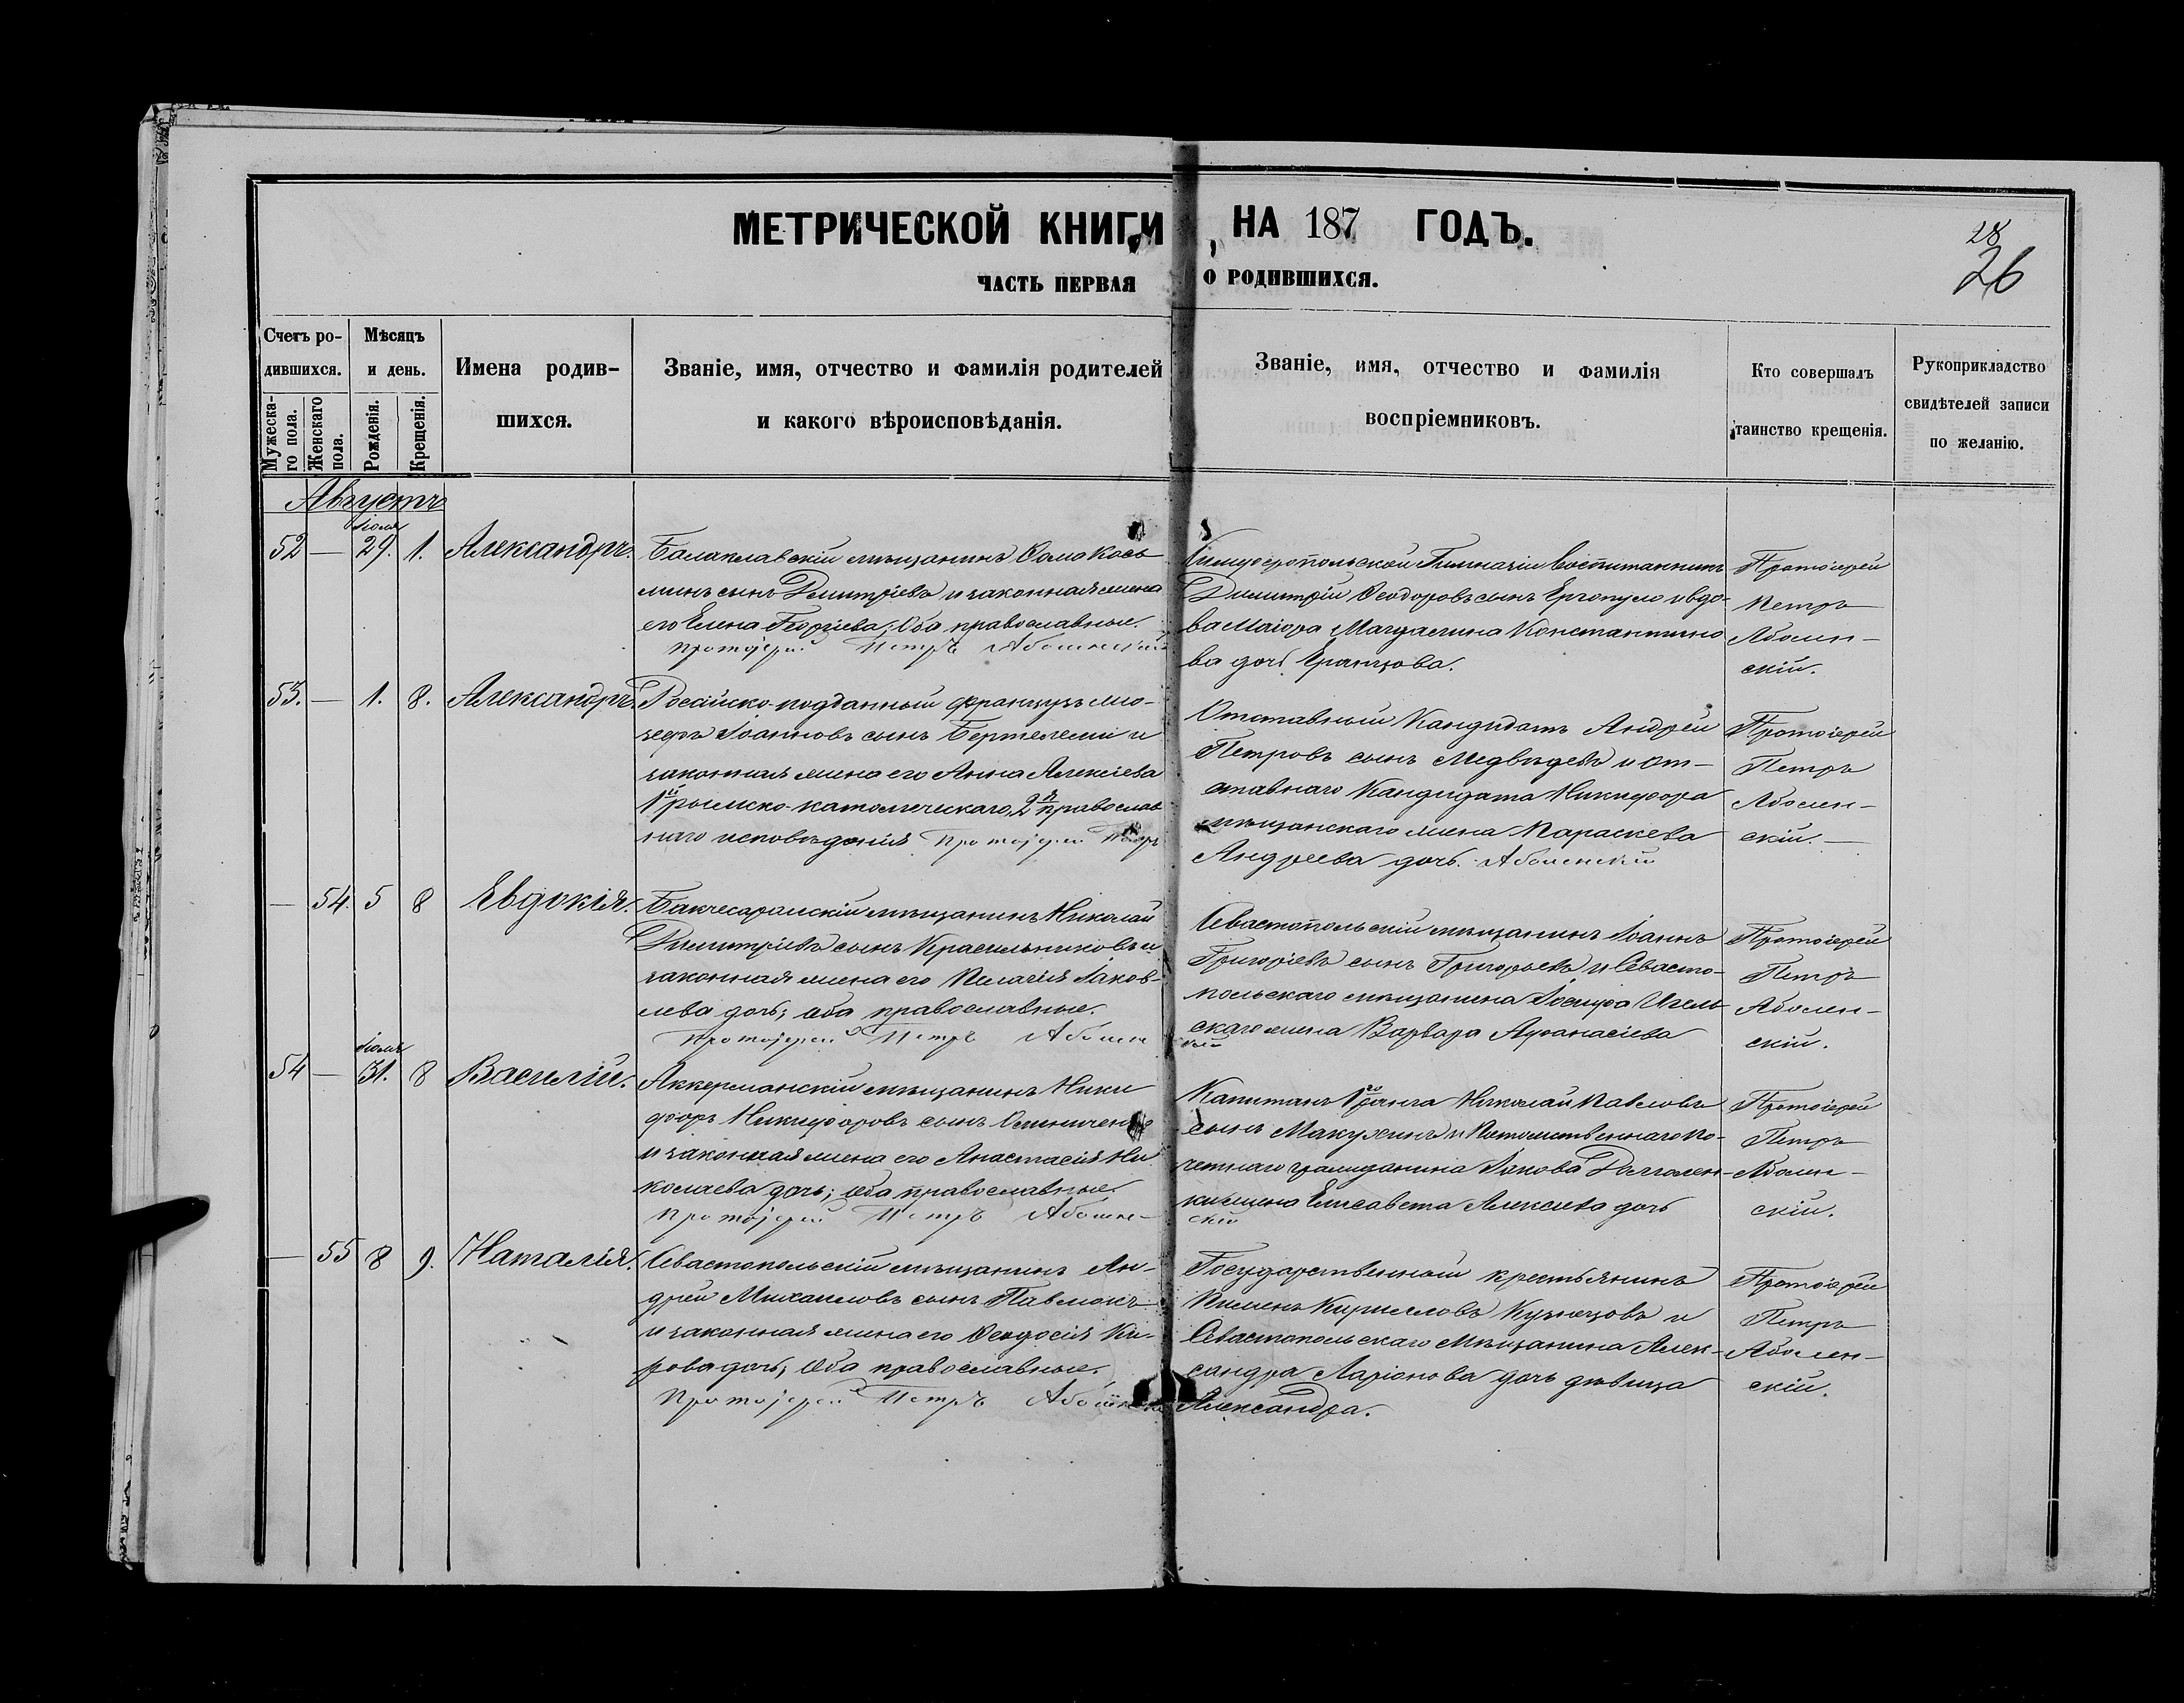 МЕТРИЧЕСКОЙ КНИГИ, НА 187 ГОДЪ.
28
26
ЧАСТЬ ПЕРВАЯ О РОДИВШИХСЯ.
Счетъ ро-
дившихся.
Мужеска-
го пола.
Женскаго
пола.
Мѣсяцъ
и день.
Рожденія.
Крещенія.
Имена родив-
шихся.
Званіе, имя, отчество и фамилія родителей
и какого вѣроисповѣданія.
Званіе, имя, отчество и фамилія
воспріемниковъ.
Кто совершалъ
таинство крещенія.
Рукоприкладство
свидѣтелей записи
по желанію.
Августъ
Іюля
52 — 29. 1. Александръ.
Балаклавскій мѣщанинъ Ѳома Кось
минъ сынъ Дмитріевъ и законная жена
его Елена Георгіева; Оба православные.
Протоіерей Петръ Аболенскій
Симферопольской Гимназіи Воспитанникъ
Димитрій Ѳеодоровъ сынъ Ергопуло и вдо-
ва Маіора Магдалина Константино
ва дочь Еранцова.
Протоіерей
Петръ
Аболен-
скій.
53. — 1. 8. Александръ.
Російско-подданный французъ
Іоанновъ сынъ Бертелеми и
законная жена его Анна Алексіева
1й римско-католическаго, 2я православ
наго исповѣданія Протоіерей Петръ
Отставный Кандидатъ Андрей
Петровъ сынъ Медвѣдевъ и От-
ставнаго Кандидата Никифора
жена Параскева
Андреева дочь. Аболенскій
Протоіерей
Петръ
Аболен-
скій. —
— 54. 5 8 Евдокія.
Бакчесарайскій мѣщанинъ Николай
Димитріевъ сынъ Красильниковъ и
законная жена его Пелагія Іаков-
лева дочь; оба православные.
Протоіерей Петръ Аболен
скій
Севастопольскій мѣщанинъ Іоаннъ
Григоріевъ сынъ Григорьевъ и Севасто-
польскаго мѣщанина Іосифа
жена Варвара Аѳанасіева
Протоіерей
Петръ
Аболен-
скій.
Іюля
54 — 31. 8 Василій.
Аккерманскій мѣщанинъ Ники
форъ Никифоровъ сынъ
и законная жена его Анастасія Ни
колаева дочь; Оба православные.
Протоіерей Петръ Аболен-
скій
Капитанъ 1го ранга Николай Павловъ
сынъ Макухинъ и Потомственнаго По-
четнаго гражданина Іакова
жена Елисавета Алексіева дочь
Протоіерей
Петръ
Аболен-
скій.
— 55 8 9. Наталія.
Севастопольскій мѣщанинъ Ан-
дрей Михаиловъ сынъ Павлюкъ
и законная жена его Ѳеодосія Ки-
рова дочь; Оба православные.
Протоіерей Петръ Аболенскі
Государственный крестьянинъ
Пименъ Кирилловъ Кузнецовъ и
Севастопольскаго Мѣщанина Алек-
сандра Ларіонова дочь дѣвица
Александра.
Протоіерей
Петръ
Аболен-
скій.